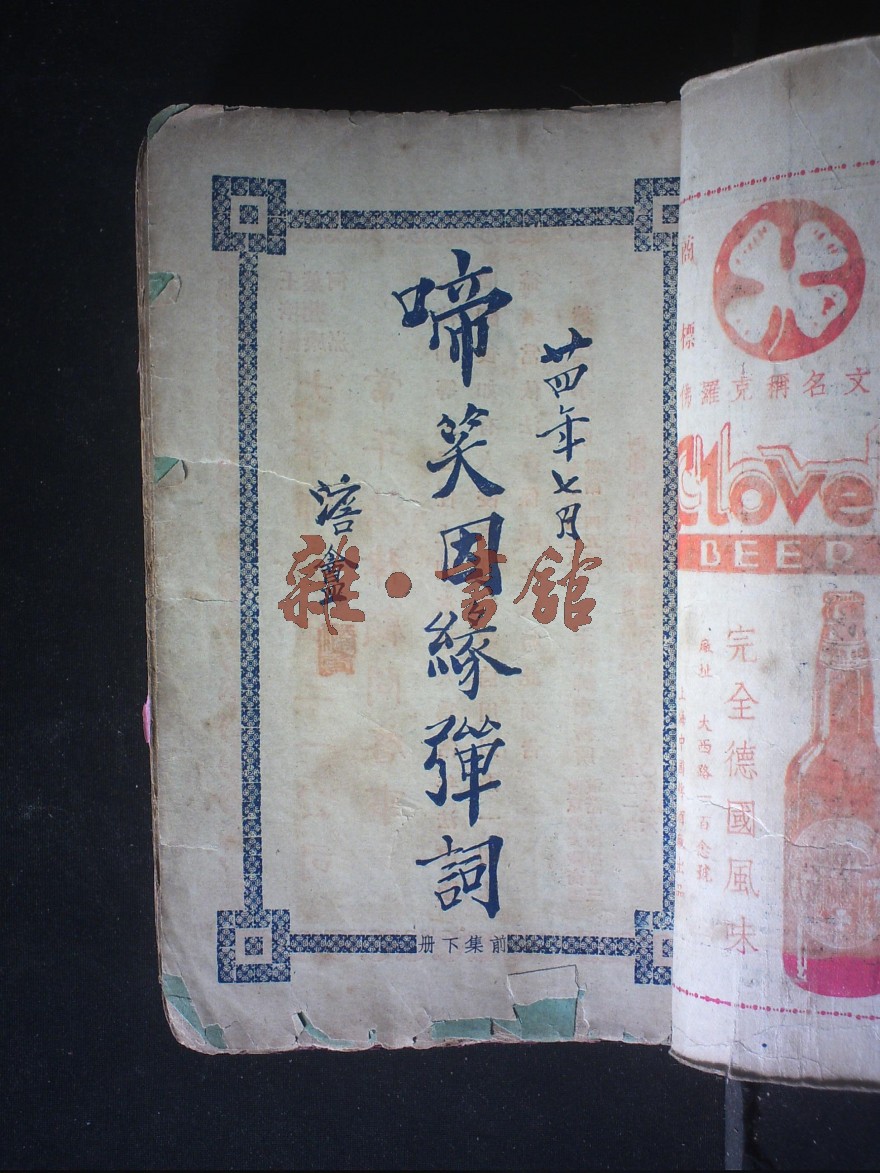 廿四年七月
啼笑因緣彈詞
澹盦
前集下册
雜·書館
商標
文名稱克羅
Clove
BEER
完全德國風味
廠址 大西路一百念號